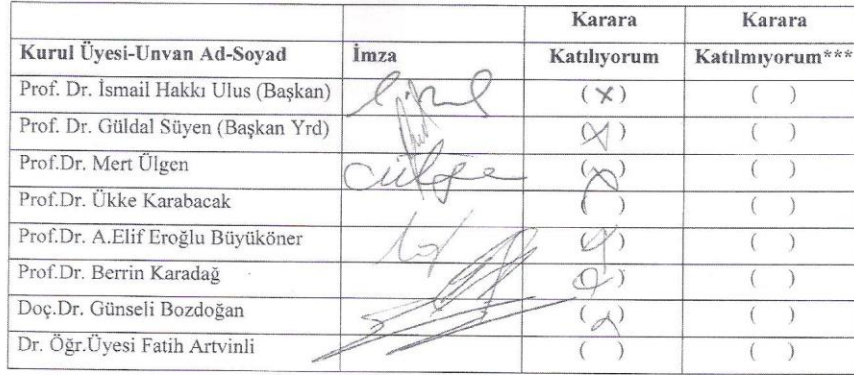 Karara Karara
Kurul Üyesi-Unvan Ad-Soyad İmza Katılıyorum Katılmıyorum***
Prof. Dr. İsmail Hakkı Ulus (Başkan) (X) ( )
Prof. Dr. Güldal Süyen (Başkan Yrd) (X) ( )
Prof.Dr. Mert Ülgen (X) ( )
Prof.Dr. Ükke Karabacak ( ) ( )
Prof.Dr. A.Elif Eroğlu Büyüköner ( ) ( )
Prof.Dr. Berrin Karadağ ( ) ( )
Doç.Dr. Günseli Bozdoğan ( ) ( )
Dr. Öğr.Üyesi Fatih Artvinli ( ) ( )